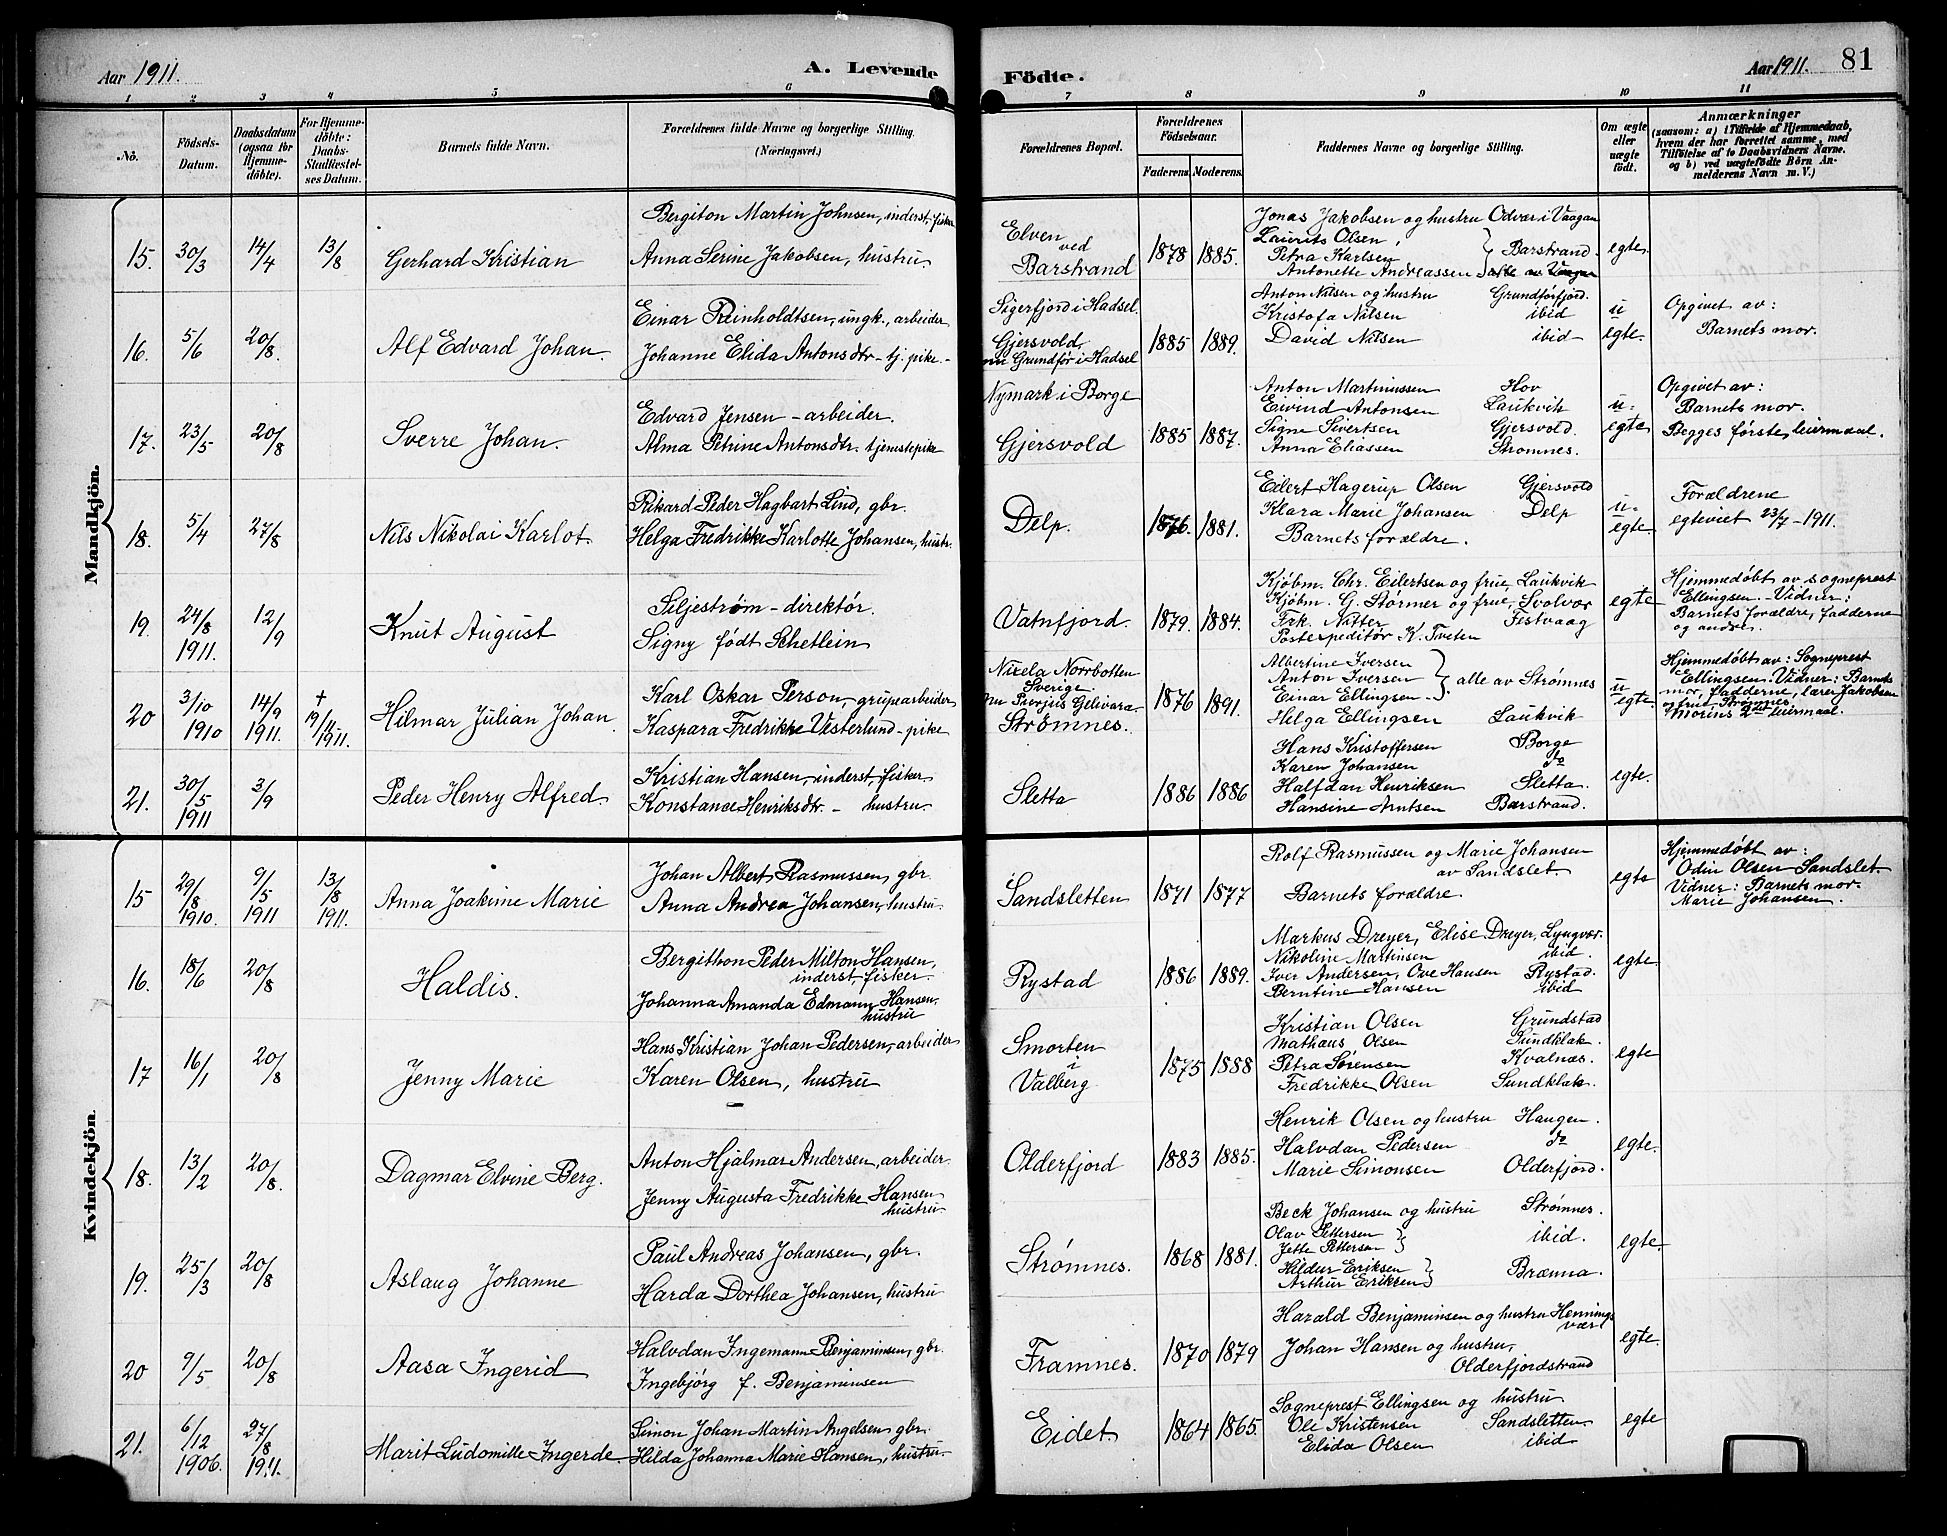 Aar 1911.
A. Levende
Födte.
Aar 1911.
81
1 2 3 4 5 6 7 8 9 10 11
No.
Födsels-
Datum.
Daabsdatum
(ogsaa for
Hjemme-
döbte).
For Hjemme-
döbte:
Daabs-
Stadfæstel-
ses Datum.
Barnets fulde Navn.
Forældrenes fulde Navne og borgerlige Stilling.
(Næringsvei.)
Forældrenes Bopæl.
Forældrenes
Födselsaar.
Faderens.
Moderens.
Faddernes Navne og borgerlige Stilling.
Om ægte
eller
uægte
födt.
Anmærkninger
(saasom: a) i Tilfælde af Hjemmedaab,
hvem der har forrettet samme, med
Tilföielse af to Daabsvidners Navne.
og b) ved uægtefödte Börn An-
melderens Navn m. V.)
Mandkjön.
15.
30/3
14/4
13/8
Gerhard Kristian
Bergiton Martin Johnsen, inderst, fisker
Anna Serine Jakobsen, hustru.
Elven
ved
Barstrand
1878
1885.
Jonas Jakobsen og hustru Odvær i Vaagan
Laurits Olsen,
Petra Karlsen
Antonette Andreassen
Barstrand.
egte.
16.
5/6
20/8.
Alf Edvard Johan.
Einar Reinholdtsen, ungk., arbeider
Johanne Elida Antonsdtr - tj. pike.-
Sigerfjord i Hadsel.
Gjersvold,
nu Grundfør i Hadsel
1885
1889.
Anton Nilsen og hustru Grundførfjord.
Kristofa Nilsen ibid
David Nilsen ibid
u
egte.
Opgivet av:
Barnets mor.
17.
23/5
20/8
Sverre Johan.
Edvard Jensen - arbeider.
Alma Petrine Antonsdtr. tjenestepike
Nymark i Borge
Gjersvold
1885
1887.
Anton Martinussen Hov
Eivind Antonsen Laukvik
Signe Sivertsen Gjersvold.
Anna Eliassen Strømnes.
u-
egte
Opgivet av:
Barnets mor.
Begges første leiermaal.
18.
5/4
27/8
Nils Nikolai Karlot.
Rikard Peder Hagbart Lind, gbr.
Helga Fredrikke Karlotte Johansen, hustr.
Delp.
1876.
1881.
Eilert Hagerup Olsen Gjersvold
Klara Marie Johansen Delp
Barnets forældre.
u-
egte.
Forældrene
egteviet 23/7 - 1911.
19.
24/8
1911.
12/9
Knut August
Siljestrøm - direktør.
Signy født Schetlein
Vatnfjord.
1879.
1884.
Kjøbm. Chr. Eilertsen og frue, Laukvik
Kjøbm. G. Størmer og frue, Svolvær
Frk. Nitter Festvaag
Postexpeditør K. Tveten
egte
Hjemmedøbt av sogneprest
Ellingsen. Vidner:
Barnets forældre, fadderne
og andre.
20
3/10
1910
14/9
1911.
†
19/11
1911.
Hilmar Julian Johan
Karl Oskar Person, grupearbeider
Kaspara Fredrikke Vesterlund - pike
Norrbotten
Sverige
nu Gelivara
Strømnes.
1876
1891.
Albertine Iversen
Anton Iversen
Einar Ellingsen
alle av Strømnes
Helga Ellingsen Laukvik
u
egte.
Hjemmedøbt av: Sogneprest
Ellingsen. Vidner: Barnets
mor, fadderne, lærer Jakobsen
og frue Strømnes.
Morens 2det leiermaal.
21.
30/5
1911
3/9
Peder Henry Alfred.
Kristian Hansen, inderst fisker
Konstance Henriksdtr. - hustru.
Sletta
1886
1886
Hans Kristoffersen Borge
Karen Johansen do
Halfdan Henriksen Sletta.
Hansine Arntsen Barstrand.
egte.
Kvindekjön.
15
29/8
1910.
9/5
1911
13/8
1911.
Anna Joakime Marie
Johan Albert Rasmussen, gbr.
Anna Andrea Johansen, hustru.
Sandsletten
1871
1877
Rolf Rasmussen og Marie Johansen
av Sandslet.
Barnets forældre.
egte
Hjemmedøbt av:
Odin Olsen Sandslet.
Vidner: Barnets mor.
Marie Johansen.
16.
18/6
20/8
Haldis.
Bergitton Peder Milton Hansen,
inderst, fisker.
Johanna Amanda Edmann Hansen,
hustru
Rystad
1886
1889.
Markus Dreyer, Elise Dreyer, Lyngvær.
Nikoline Martinsen ibid.
Iver Andersen, Ove Hansen Rystad.
Berntine Hansen ibid
egte.
17
16/1
20/8
Jenny Marie
Hans Kristian Johan Pedersen, arbeider
Karen Olsen, hustru
Smorten
i
Valberg
1875
1888
Kristian Olsen Grundstad
Mathæus Olsen Sundklak.
Petra Sørensen Kvalnæs.
Fredrikke Olsen Sundklak.
egte
18.
13/2
20/8.
Dagmar Elvine Berg.
Anton Hjalmar Andersen, arbeider.
Jenny Augusta Fredrikke Hansen
hustru.
Olderfjord
1883
1885.
Henrik Olsen og hustru Haugen.
Halvdan Pedersen do
Marie Simonsen Olderfjord.
egte.
19.
25/3
20/8
Aslaug Johanne
Paul Andreas Johansen, gbr.
Harda Dorthea Johansen, hustru
Strømnes.
1868
1881.
Beck Johansen og hustru Strømnes.
Olav Pettersen
Jette Pettersen
ibid.
Hildur Eriksen
Arthur Eriksen
Brænna.
egte.
20
9/5
20/8
Aasa Ingerid
Halvdan Ingemann Benjaminsen, gbr.
Ingebjørg f. Benjaminsen
Framnes.
1870
1879
Harald Benjaminsen og hustru Hennings
vær
Johan Hansen og hustru,
Olderfjordstrand
egte.
21.
6/12
1906.
27/8
1911.
Marit Ludomille Ingerde.
Simon Johan Martin Angelsen gbr.
Hilda Johanna Marie Hansen, hustru.
Eidet.
1864
1865.
Sogneprest Ellingsen og hustru
Ole Kristensen Sandsletten
Elida Olsen ibid
egte